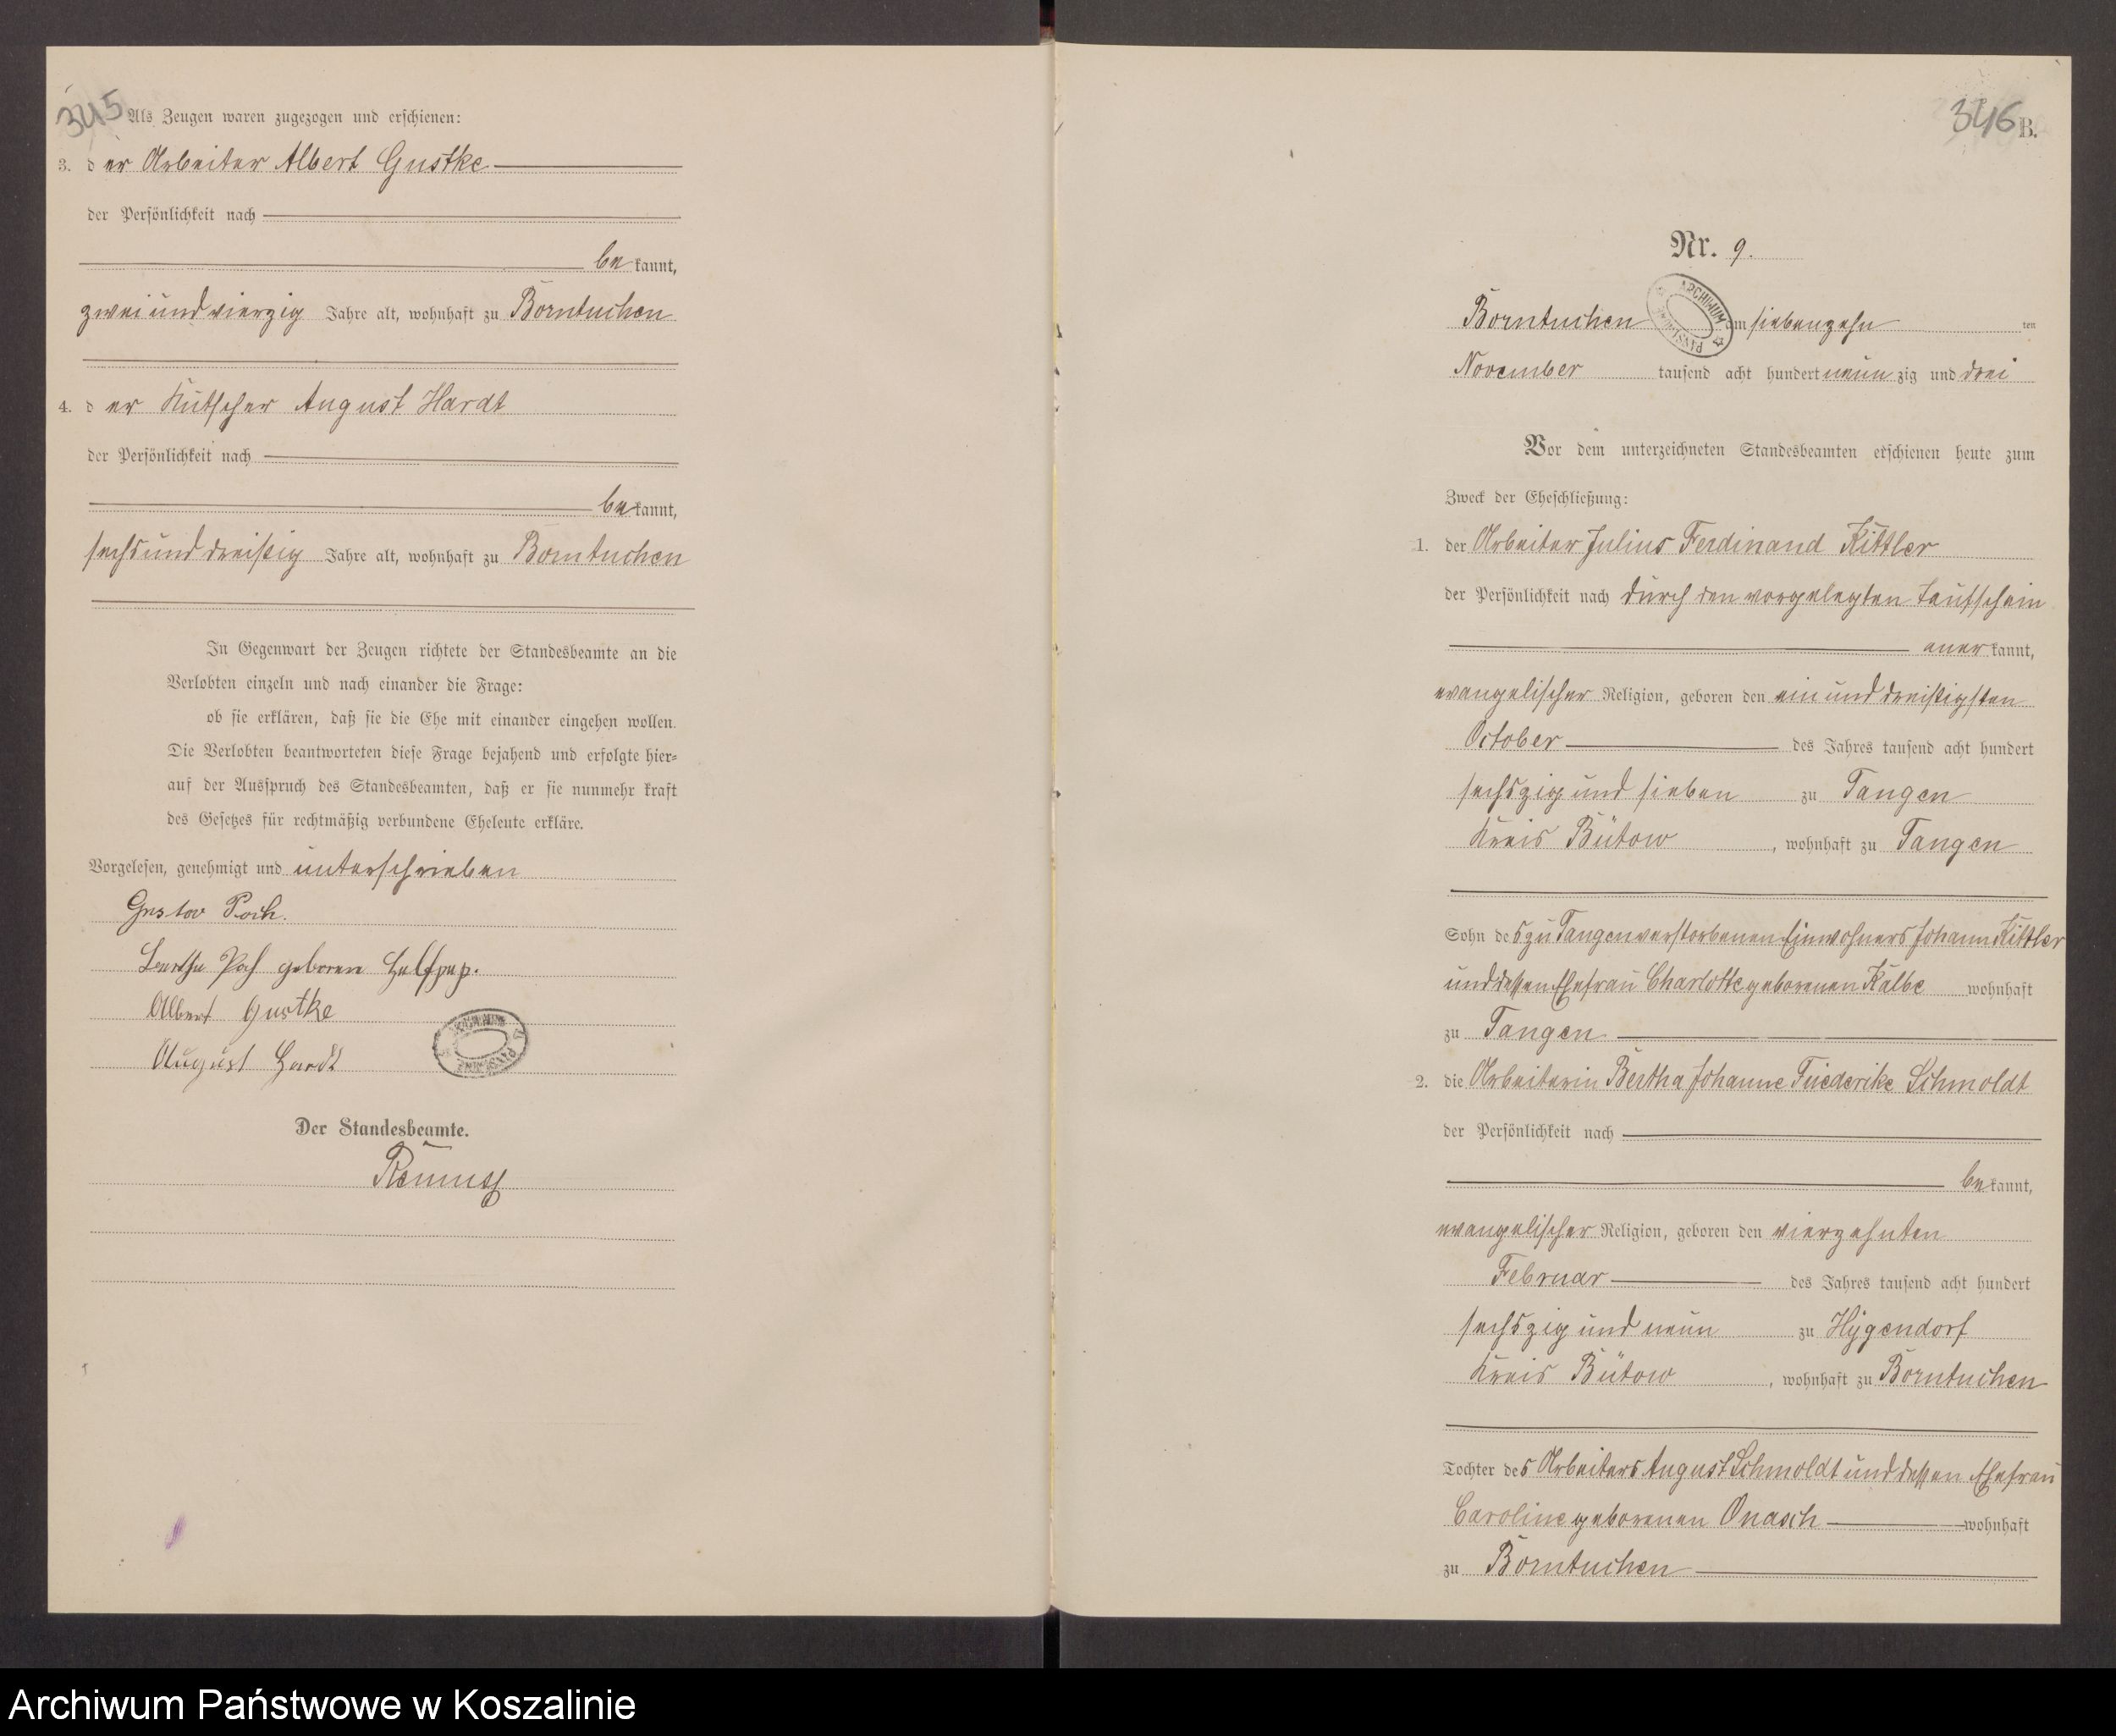 345
Als Zeugen waren zugezogen und erschienen:
3. der Arbeiter Albert Gustke
der Persönlichkeit nach
bekannt,
zwei und vierzig Jahre alt, wohnhaft zu Borntuchen
4. der Kutscher August Hardt
der Persönlichkeit nach
bekannt,
sechs und dreißig Jahre alt, wohnhaft zu Borntuchen
In Gegenwart der Zeugen richtete der Standesbeamte an die
Verlobten einzeln und nach einander die Frage:
ob sie erklären, daß sie die Ehe mit einander eingehen wollen.
Die Verlobten beantworteten diese Frage bejahend und erfolgte hier=
auf der Ausspruch des Standesbeamten, daß er sie nunmehr kraft
des Gesetzes für rechtmäßig verbundene Eheleute erkläre.
Vorgelesen, genehmigt und unterschrieben
Gustav Poch.
Bertha Poch geboren Halfpap.
Albert Gustke
August Hardt
Der Standesbeamte.
346 B.
Nr. 9.
ARCHIWUM
Borntuchen am siebenzehn ten
November tausend acht hundert neun zig und drei
Vor dem unterzeichneten Standesbeamten erschienen heute zum
Zweck der Eheschließung:
1. der Arbeiter Julius Ferdinand Kittler
der Persönlichkeit nach durch den vorgelegten Taufschein
anerkannt,
evangelischer Religion, geboren den ein und dreißigsten
October des Jahres tausend acht hundert
sechszig und sieben zu Tangen
Kreis Bütow, wohnhaft zu Tangen
Sohn des zu Tangen verstorbenen Einwohners Johann Kittler
und dessen Ehefrau Charlotte geborenen Kalbe wohnhaft
zu Tangen
2. die Arbeiterin Bertha Johanne Friederike Schmoldt
der Persönlichkeit nach
bekannt,
evangelischer Religion, geboren den vierzehnten
Februar des Jahres tausend acht hundert
sechszig und neun zu Hygendorf
Kreis Bütow, wohnhaft zu Borntuchen
Tochter des Arbeiters August Schmoldt und dessen Ehefrau
Caroline geborenen Onasch wohnhaft
zu Borntuchen
Archiwum Państwowe w Koszalinie